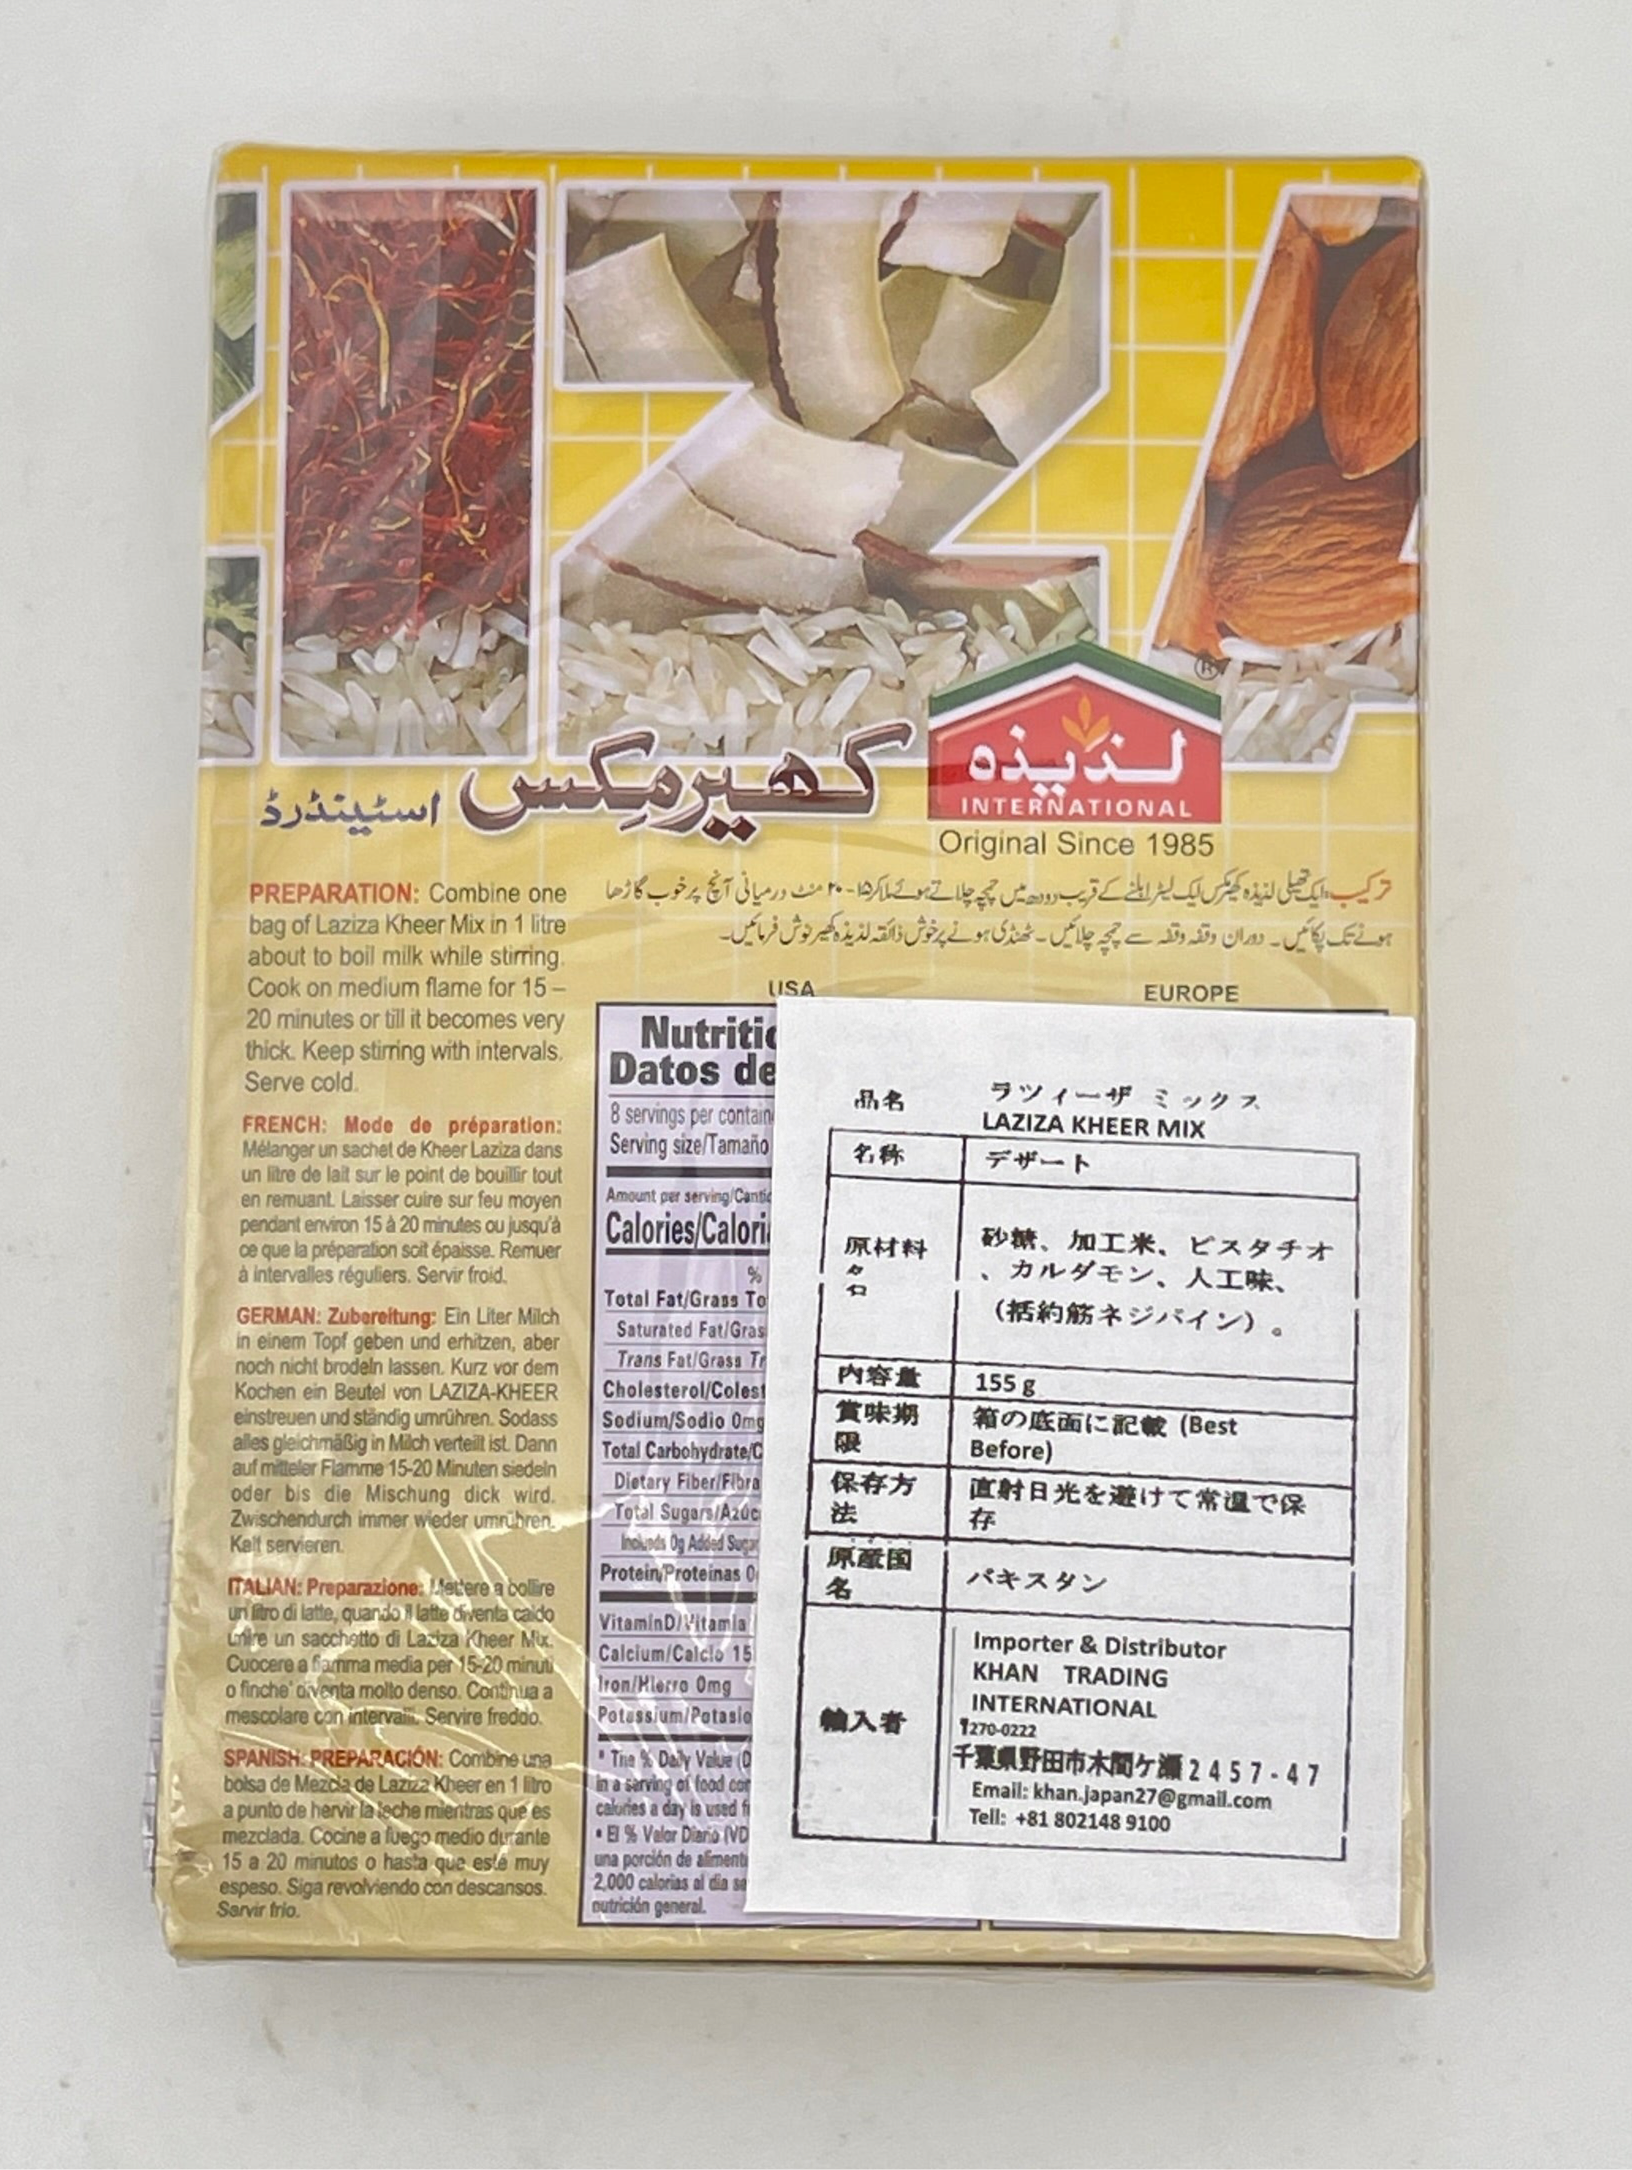 لذیذہ
INTERNATIONAL
®
Original Since 1985
کھیر مکس
اسٹینڈرڈ
PREPARATION: Combine one
bag of Laziza Kheer Mix in 1 litre
about to boil milk while stirring.
Cook on medium flame for 15 –
20 minutes or till it becomes very
thick. Keep stirring with intervals.
Serve cold.
FRENCH: Mode de préparation:
Mélanger un sachet de Kheer Laziza dans
un litre de lait sur le point de bouillir tout
en remuant. Laisser cuire sur feu moyen
pendant environ 15 à 20 minutes ou jusqu'à
ce que la préparation soit épaisse. Remuer
à intervalles réguliers. Servir froid.
GERMAN: Zubereitung: Ein Liter Milch
in einem Topf geben und erhitzen, aber
noch nicht brodeln lassen. Kurz vor dem
Kochen ein Beutel von LAZIZA-KHEER
einstreuen und ständig umrühren. Sodass
alles gleichmäßig in Milch verteilt ist. Dann
auf mitteler Flamme 15-20 Minuten siedeln
oder bis die Mischung dick wird.
Zwischendurch immer wieder umrühren.
Kalt servieren.
ITALIAN: Preparazione: Mettere a bollire
un litro di latte, quando il latte diventa caldo
unire un sacchetto di Laziza Kheer Mix.
Cuocere a fiamma media per 15-20 minuti
o finche' diventa molto denso. Continua a
mescolare con intervalli. Servire freddo.
SPANISH: PREPARACIÓN: Combine una
bolsa de Mezcla de Laziza Kheer en 1 litro
a punto de hervir la leche mientras que es
mezclada. Cocine a fuego medio durante
15 a 20 minutos o hasta que esté muy
espeso. Siga revolviendo con descansos.
Servir frío.
ترکیب: ایک تھیلی لذیذہ کھیر مکس ایک لیٹر ابلنے کے قریب دودھ میں چمچہ چلاتے ہوئے ملاکر ۱۵-۲۰ منٹ درمیانی آنچ پر خوب گاڑھا
ہونے تک پکائیں۔ دوران وقفہ وقفہ سے چمچہ چلائیں۔ ٹھنڈی ہونے پر خوش ذائقہ لذیذہ کھیر نوش فرمائیں۔
USA
EUROPE
Nutritio
Datos de
8 servings per contain
Serving size/Tamaño
Amount per serving/Cantid
Calories/Calori
%
Total Fat/Grasa To
Saturated Fat/Gras
Trans Fat/Grasa Tr
Cholesterol/Colest
Sodium/Sodio 0mg
Total Carbohydrate/C
Dietary Fiber/Fibra
Total Sugars/Azúc
Includs 0g Added Sugar
Protein/Proteinas 0
VitaminD/Vitamia
Calcium/Calcio 15
Iron/Hierro 0mg
Potassium/Potasio
* The % Daily Value (D
in a serving of food con
calories a day is used f
• El % Valor Diario (VD
una porción de alimento
2,000 calorias al dia se
nutrición general.
品名 ラツィーザ ミックス
LAZIZA KHEER MIX
名称 デザート
原材料名 砂糖、加工米、ピスタチオ
、カルダモン、人工味、
(括約筋ネジパイン)。
内容量 155 g
賞味期限 箱の底面に記載 (Best
Before)
保存方法 直射日光を避けて常温で保
存
原産国名 パキスタン
輸入者
Importer & Distributor
KHAN TRADING
INTERNATIONAL
〒270-0222
千葉県野田市木間ケ瀬2457-47
Email: khan.japan27@gmail.com
Tell: +81 802148 9100